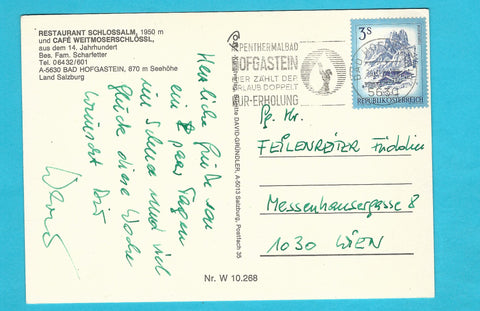 RESTAURANT SCHLOSSALM, 1950 m
und CAFÉ WEITMOSERSCHLÖSSL,
aus dem 14. Jahrhundert
Bes. Fam. Scharfetter
Tel. 06432/601
A-5630 BAD HOFGASTEIN, 870 m Seehöhe
Land Salzburg
Herzliche Grüße von
ein paar Tagen
im Schnee und viel
Glück diese Woche
wünscht Dir
DAVID-GRÜNDLER, A-5013 Salzburg, Postfach 35
ALPENTHERMALBAD
HOFGASTEIN
HIER ZÄHLT DER
URLAUB DOPPELT
KUR-ERHOLUNG
BAD
5630
3S
REPUBLIK ÖSTERREICH
FEILENREITER
Messenhausergasse 8
1030 WIEN
Nr. W 10.268